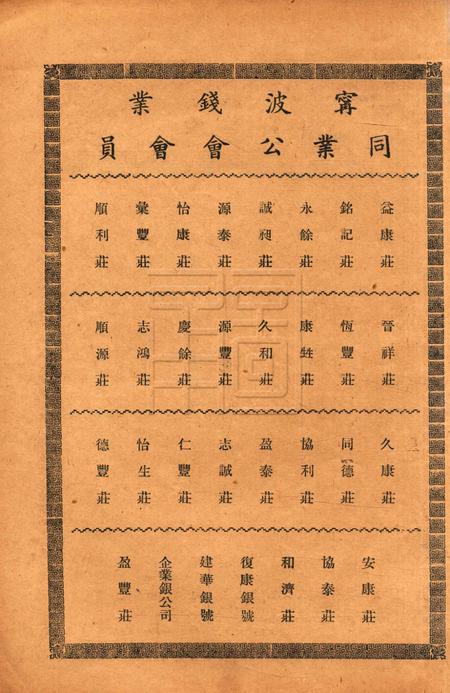 甯波錢業
同業公會會員
益康莊
銘記莊
永餘莊
誠昶莊
源泰莊
怡康莊
彙豐莊
順利莊
晉祥莊
恆豐莊
康甡莊
久和莊
源豐莊
慶餘莊
志鴻莊
順源莊
久康莊
同德莊
協利莊
盈泰莊
志誠莊
仁豐莊
怡生莊
德豐莊
安康莊
協泰莊
和濟莊
復康銀號
建華銀號
企業銀公司
盈豐莊